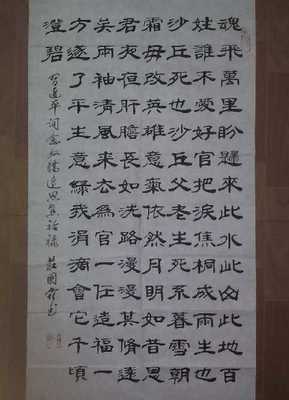 魂飛萬里盼歸來此水此山此地百
姓誰不愛好官把淚焦桐成雨生也
沙丘死也沙丘父老生死系暮雪朝
霜毋改英雄意氣依然月明如昔思
君夜夜肝膽長如洗路漫漫其脩遠
矣兩袖清風來去為官一任造福一
方遂了平生意綠我涓滴會它千頃
澄碧
習近平詞念奴嬌追思焦裕祿 莊國書